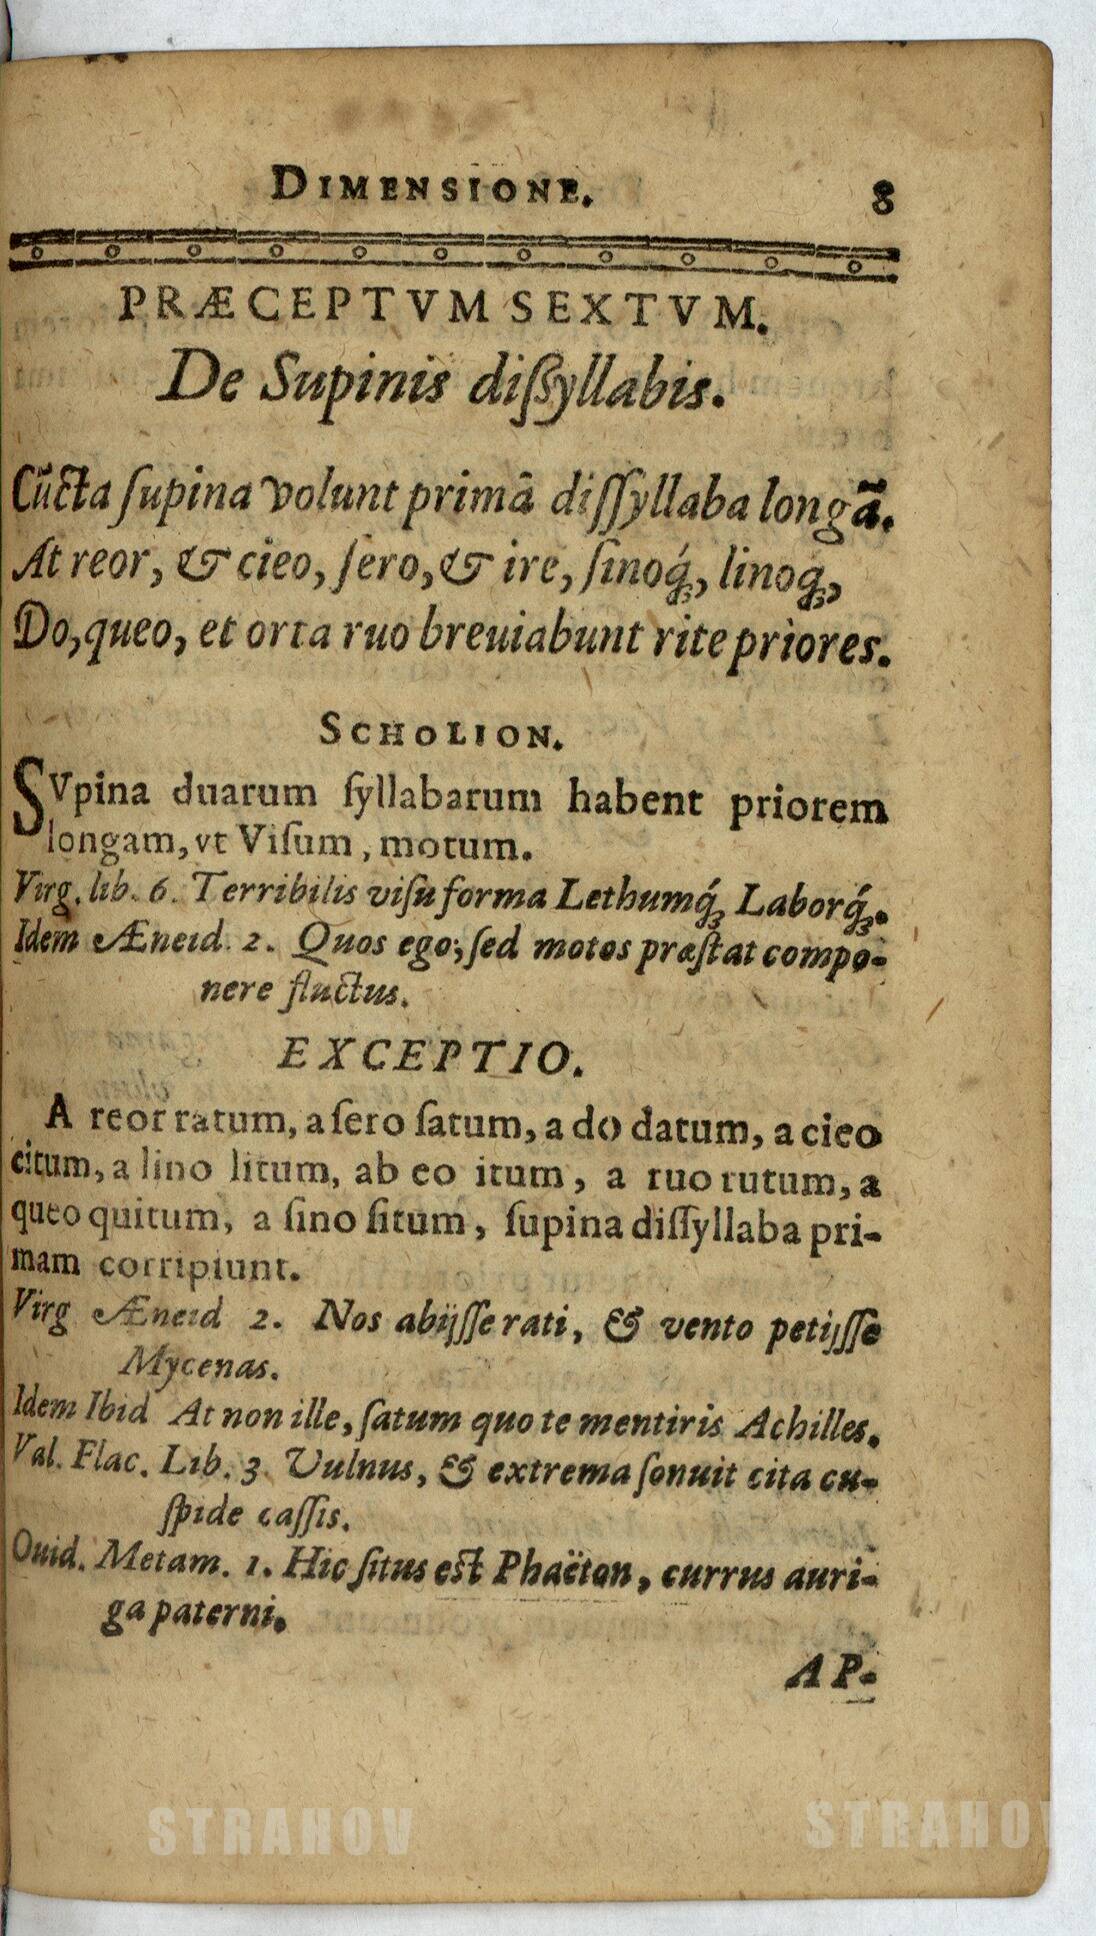 DIMENSIONE. 8
PRÆCEPTVM SEXTVM.
De Supinis diſſyllabis.
Cūcta ſupina volunt primā diſſyllaba longā.
At reor, & cieo, ſero, & ire, ſinoq́ꝫ, linoq́ꝫ,
Do, queo, et orta ruo breuiabunt rite priores.
SCHOLION.
SVpina duarum ſyllabarum habent priorem
longam, vt Viſum, motum.
Virg. lib. 6. Terribilis viſu forma Lethumq́ꝫ Laborq́ꝫ.
Idem Æneid. 2. Quos ego; ſed motos præſtat compo-
nere fluctus.
EXCEPTIO.
A reor ratum, a ſero ſatum, a do datum, a cieo
citum, a lino litum, ab eo itum, a ruo rutum, a
queo quitum, a ſino ſitum, ſupina diſſyllaba pri-
mam corripiunt.
Virg Æneid 2. Nos abijſſe rati, & vento petijſſe
Mycenas.
Idem Ibid At non ille, ſatum quo te mentiris Achilles.
Val. Flac. Lib. 3 Vulnus, & extrema ſonuit cita cu-
ſpide caſſis.
Ouid. Metam. 1. Hic ſitus eſt Phaëton, currus auri-
ga paterni.
AP-
STRAHOV STRAHOV